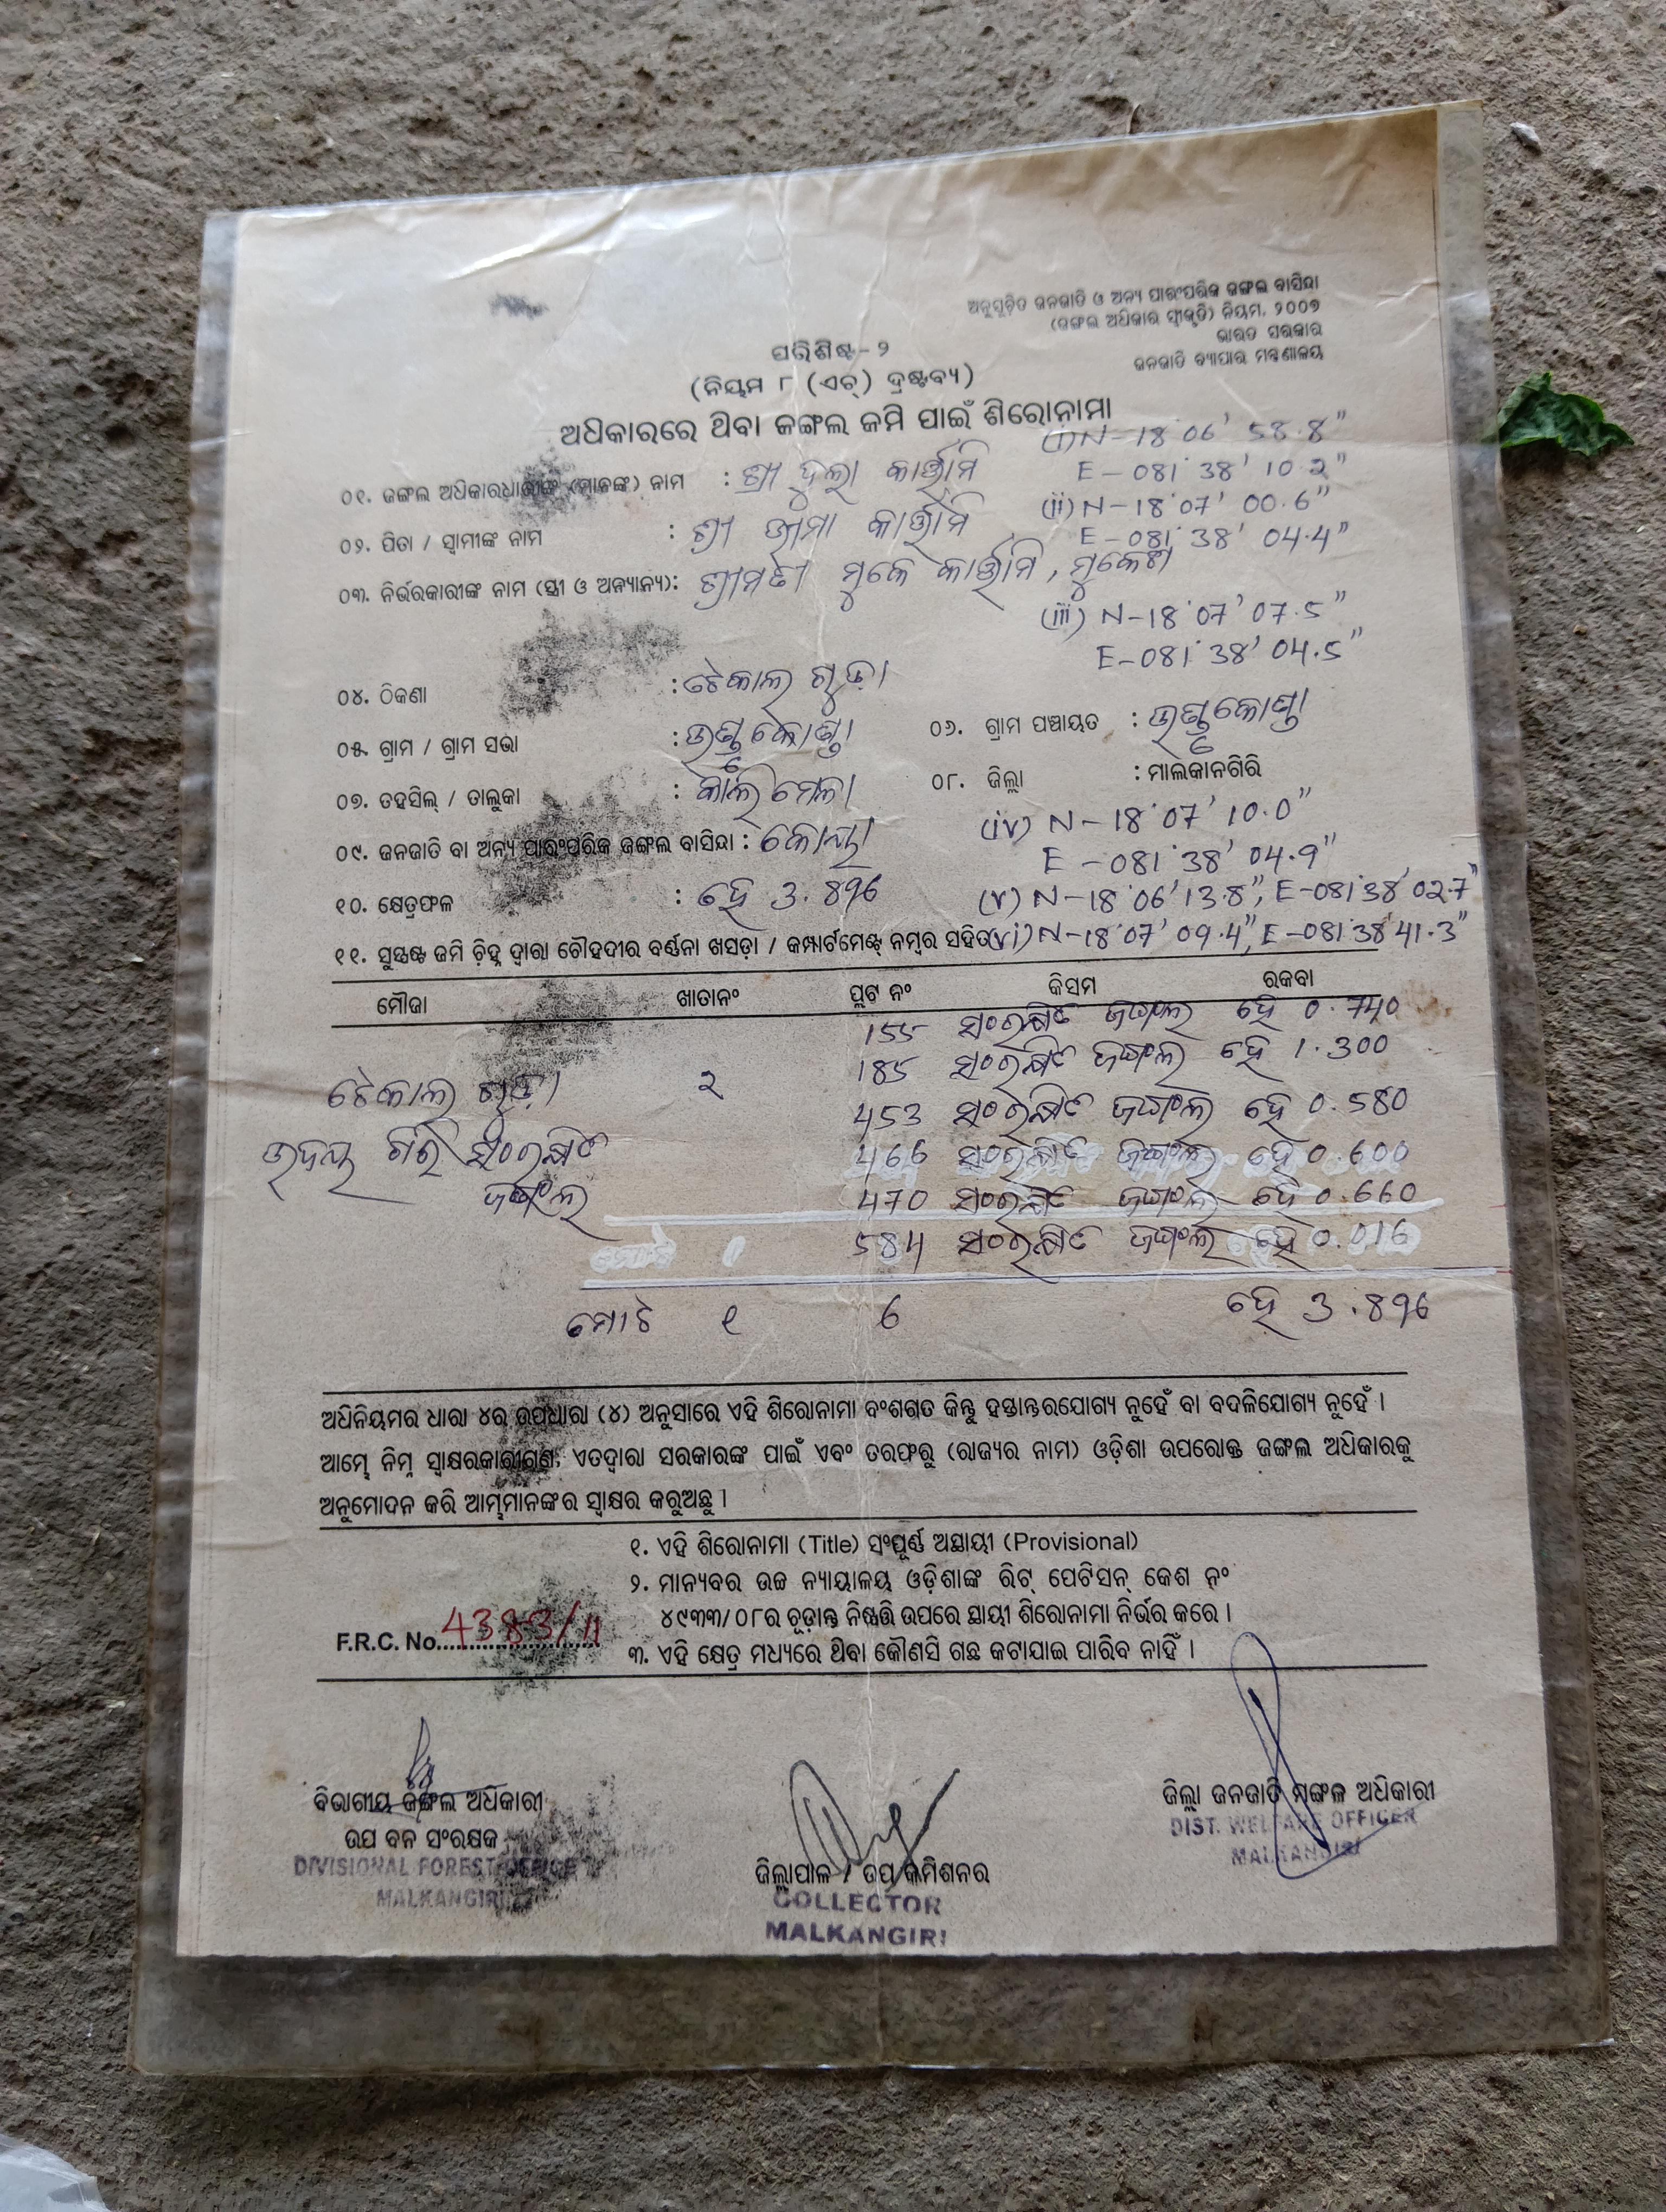 ଅନୁସୂଚିତ ଜନଜାତି ଓ ଅନ୍ୟ ପାରଂପରିକ ଜଙ୍ଗଲ ବାସିନ୍ଦା
(ଜଙ୍ଗଲ ଅଧିକାର ସ୍ୱୀକୃତି) ନିୟମ, ୨୦୦୭
ଭାରତ ସରକାର
ଜନଜାତି ବ୍ୟାପାର ମନ୍ତ୍ରଣାଳୟ
ପରିଶିଷ୍ଟ - ୨
(ନିୟମ ୮ (ଏଚ୍) ଦ୍ରଷ୍ଟବ୍ୟ)
ଅଧିକାରରେ ଥିବା ଜଙ୍ଗଲ ଜମି ପାଇଁ ଶିରୋନାମା
(i) N-18°06' 58.8"
E-081°38' 10.2"
୦୧. ଜଙ୍ଗଲ ଅଧିକାରଧାରୀଙ୍କ (ମାନଙ୍କ) ନାମ : ଶ୍ରୀ ଦୁଲା କାର୍ତ୍ତାମି
(ii) N-18°07' 00.6"
E-081°38' 04.4"
୦୨. ପିତା / ସ୍ୱାମୀଙ୍କ ନାମ : ଶ୍ରୀ ଭୀମା କାର୍ତ୍ତାମି
୦୩. ନିର୍ଭରକାରୀଙ୍କ ନାମ (ସ୍ତ୍ରୀ ଓ ଅନ୍ୟାନ୍ୟ): ଶ୍ରୀମତୀ ମୁକେ କାର୍ତ୍ତାମି,
(iii) N-18°07' 07.5"
E-081°38' 04.5"
୦୪. ଠିକଣା : ଟେକାଲ ଗୁଡ଼ା
୦୫. ଗ୍ରାମ / ଗ୍ରାମ ସଭା : ୦୬. ଗ୍ରାମ ପଞ୍ଚାୟତ :
୦୭. ତହସିଲ୍ / ତାଲୁକା : କାଲିମେଳା ୦୮. ଜିଲ୍ଲା : ମାଲକାନଗିରି
(iv) N-18°07' 10.0"
E-081°38' 04.9"
୦୯. ଜନଜାତି ବା ଅନ୍ୟ ପାରଂପରିକ ଜଙ୍ଗଲ ବାସିନ୍ଦା : କୋୟା
୧୦. କ୍ଷେତ୍ରଫଳ : ହେ 3.896 (v) N-18°06'13.8", E-081°38'02.7"
୧୧. ସୁସ୍ପଷ୍ଟ ଜମି ଚିହ୍ନ ଦ୍ୱାରା ଚୌହଦୀର ବର୍ଣ୍ଣନା ଖସଡ଼ା / କମ୍ପାର୍ଟମେଣ୍ଟ୍ ନମ୍ବର ସହିତ (vi) N-18°07' 09.4", E-081°38'41.3"
ମୌଜା ଖାତାନଂ ପ୍ଲଟ ନଂ କିସମ ରକବା
155 ସଂରକ୍ଷିତ ଜଙ୍ଗଲ ହେ 0.740
185 ସଂରକ୍ଷିତ ଜଙ୍ଗଲ ହେ 1.300
ଟେକାଲ ଗୁଡ଼ା ୨ 453 ସଂରକ୍ଷିତ ଜଙ୍ଗଲ ହେ 0.580
ଉଦୟ ଗିରି ସଂରକ୍ଷିତ 466 ସଂରକ୍ଷିତ ଜଙ୍ଗଲ ହେ 0.600
ଜଙ୍ଗଲ 470 ସଂରକ୍ଷିତ ଜଙ୍ଗଲ ହେ 0.660
584 ସଂରକ୍ଷିତ ଜଙ୍ଗଲ ହେ 0.016
ମୋଟ ୧ 6 ହେ 3.896
ଅଧିନିୟମର ଧାରା ୪ର ଉପଧାରା (୪) ଅନୁସାରେ ଏହି ଶିରୋନାମା ବଂଶଗତ କିନ୍ତୁ ହସ୍ତାନ୍ତରଯୋଗ୍ୟ ନୁହେଁ ବା ବଦଳିଯୋଗ୍ୟ ନୁହେଁ ।
ଆମ୍ଭେ ନିମ୍ନ ସ୍ୱାକ୍ଷରକାରୀଗଣ, ଏତଦ୍ୱାରା ସରକାରଙ୍କ ପାଇଁ ଏବଂ ତରଫରୁ (ରାଜ୍ୟର ନାମ) ଓଡ଼ିଶା ଉପରୋକ୍ତ ଜଙ୍ଗଲ ଅଧିକାରକୁ
ଅନୁମୋଦନ କରି ଆମ୍ଭମାନଙ୍କର ସ୍ୱାକ୍ଷର କରୁଅଛୁ ।
୧. ଏହି ଶିରୋନାମା (Title) ସଂପୂର୍ଣ୍ଣ ଅସ୍ଥାୟୀ (Provisional)
୨. ମାନ୍ୟବର ଉଚ୍ଚ ନ୍ୟାୟାଳୟ ଓଡ଼ିଶାଙ୍କ ରିଟ୍ ପେଟିସନ୍ କେଶ ନଂ
୪୯୩୩/୦୮ର ଚୂଡ଼ାନ୍ତ ନିଷ୍ପତ୍ତି ଉପରେ ସ୍ଥାୟୀ ଶିରୋନାମା ନିର୍ଭର କରେ ।
F.R.C. No. 4383/11
୩. ଏହି କ୍ଷେତ୍ର ମଧ୍ୟରେ ଥିବା କୌଣସି ଗଛ କଟାଯାଇ ପାରିବ ନାହିଁ ।
ବିଭାଗୀୟ ଜଙ୍ଗଲ ଅଧିକାରୀ
ଉପ ବନ ସଂରକ୍ଷକ
DIVISIONAL FOREST OFFICE
MALKANGIRI
ଜିଲ୍ଲାପାଳ / ଉପ କମିଶନର
COLLECTOR
MALKANGIRI
ଜିଲ୍ଲା ଜନଜାତି ମଙ୍ଗଳ ଅଧିକାରୀ
DIST. WELFARE OFFICER
MALKANGIRI